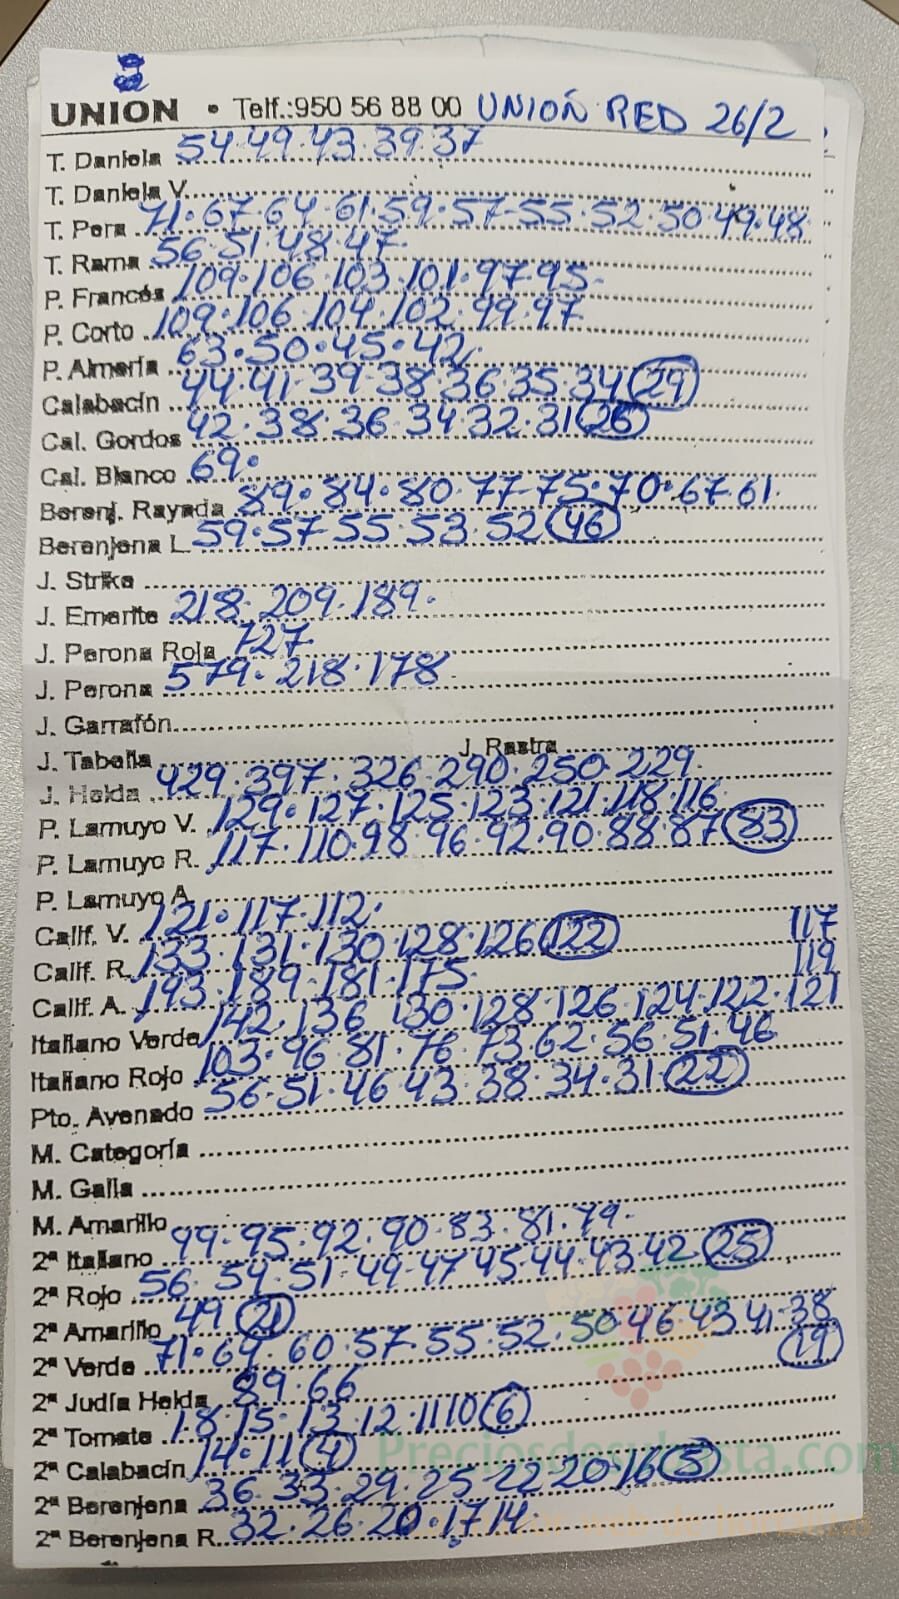 UNION • Telf.:950 56 88 00 UNIOÑ RED 26/2
T. Daniela 54.49.43.39.37
T. Daniela V.
T. Pera 71.67.64.61.59.57-55.52.50.49.48
T. Rama 56.51.48.47.
P. Francés 109.106.103.101.97.95.
P. Corto 109.106.104.102.99.97
P. Almería 63.50.45.42.
Calabacín 44.41.39.38.36.35.34 29
Cal. Gordos 42.38.36.34.32.31 26
Cal. Blanco 69.
Berenj. Rayada 89.84.80.77-75.70.67.61.
Berenjena L. 59.57-55.53.52 46
J. Strike
J. Emerite 218.209.189.
J. Perona Roja 727
J. Perona 579.218.178
J. Garrafón
J. Tabella J. Rastra
J. Helda 429.397.326.290.250.229.
P. Lamuyo V. 129.127.125.123.121.118.116
P. Lamuyo R. 117.110.98.96.92.90.88.87 83
P. Lamuyo A.
Calif. V. 121.117.112.
Calif. R. 133.131.130.128.126 122 117
Calif. A. 193.189.181.175. 119
Italiano Verde 142.136 130.128.126.124.122.121
Italiano Rojo 103.96.81.76.73.62.56.51.46
Pto. Avenado 56.51.46.43.38.34.31 22
M. Categoría
M. Galia
M. Amarillo
2ª Italiano 99.95.92.90.83.81.79.
2ª Rojo 56.54.51.49-47 45.44.43.42 25
2ª Amarillo 49 21
2ª Verde 71.64.60.57.55.52.50.46.43 41.38
19
2ª Judía Helda 89.66
2ª Tomate 18.15.13.12.11 10 6
2ª Calabacín 14.11 4
2ª Berenjena 36.33.29.25.22 20.16 5
2ª Berenjena R. 32.26.20.17 14.
Preciosdesubasta.com
web de hortalizas